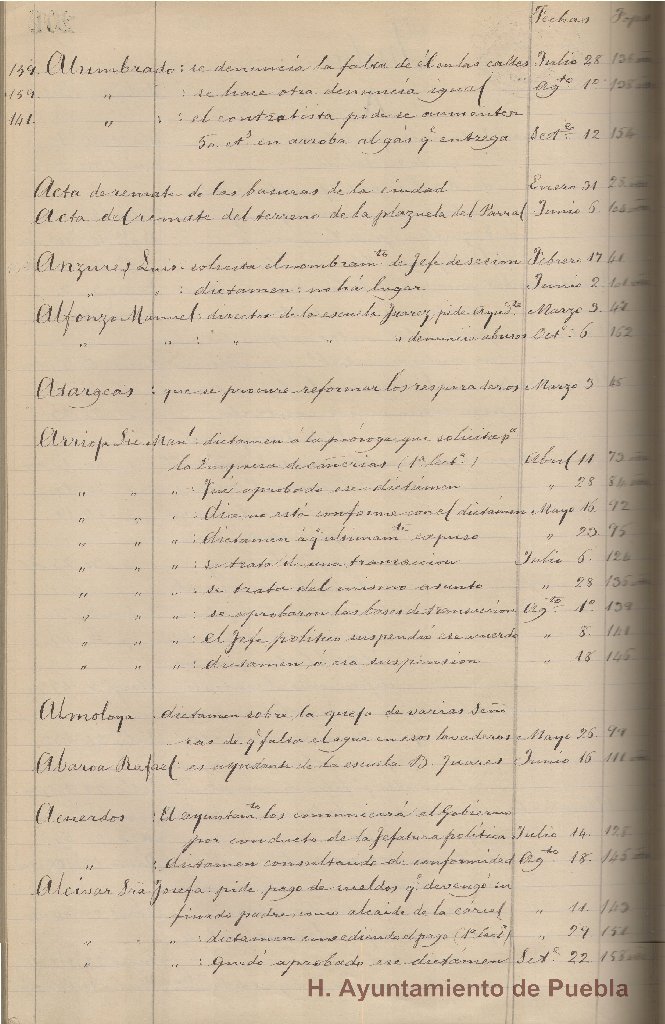 Fechas Fojas
139. Alumbrado: se denuncia la falta de él en las calles Julio 28 135
139. " : se hace otra denuncia igual Agto 1o 138
141. " : el contratista pide se aumenten
50 cts en arroba al gas q entrega Sete 12 154
Acta de remate de las basuras de la ciudad Enero 31 28
Acta del remate del terreno de la plazuela del Parral Junio 6
Anzures Luis: solicita el nombramto de Jefe de seccion Febrero 17 41
" " : dictamen: no há lugar Junio 2
Alfonzo Manuel: director de la escuela Juarez pide Ayudte Marzo 3. 47
" " : " " " denuncia abusos Oct: 6 162
Atargeas : que se procure reformar los respiraderos Marzo 3 45
Arrioja Lic Manl: dictamen á la próroga que solicita pa
la Empresa de cañerias (1a lecta) Abril 11 73
" " " : fué aprobado ese dictámen " 28 84
" " " : dice no está conforme con el dictámen Mayo 16. 92
" " " : dictamen á q ultimamte expuso " 23. 95
" " " : se trata de una transaccion Julio 6. 126
" " " : se trata del mismo asunto " 28 135
" " " : se aprobaron las bases de transaccion Agto 1o 139
" " " : el Jefe politico suspendió ese acuerdo " 8. 141
" " " : dictamen á esa suspension " 18 145
Almoloya : dictamen sobre la queja de varias Seño
ras de q falta el agua en esos lavaderos Mayo 26. 99
Abaroa Rafael: es ayudante de la escuela B. Juares Junio 16 111
Acuerdos : El ayuntamto los comunicará al Gobierno
por conducto de la Jefatura política Julio 14. 128
" : dictamen consultando de conformidad Agto 18. 145
Alcivar Sra Josefa: pide pago de sueldos q devengó su
finado padre como alcaide de la cárcel " 11. 143
" " : dictamen concediendo el pago (1a lecta) " 29 151
" " : Quedó aprobado ese dictamen Sete 22 158
H. Ayuntamiento de Puebla